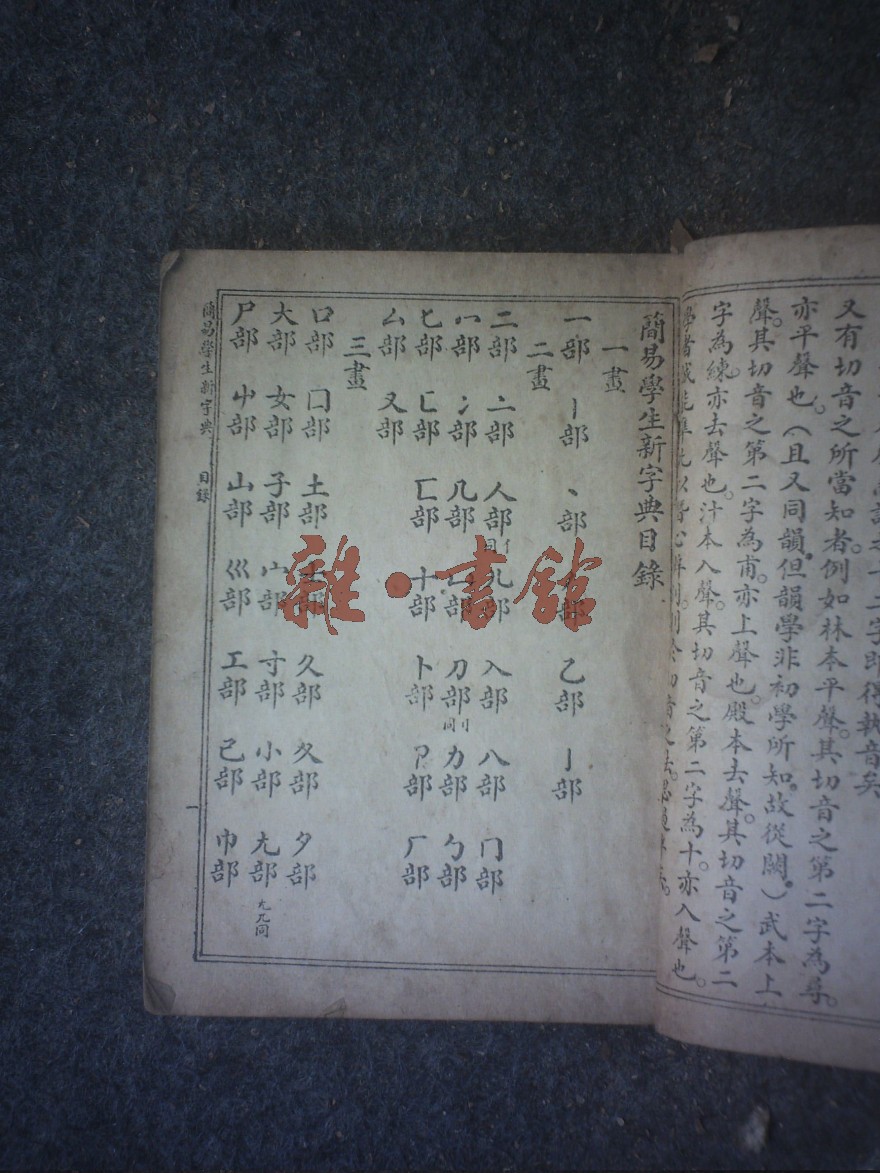 又有切音之所當知者。例如林本平聲。其切音之第二字為尋。
亦平聲也。(且又同韻。但韻學非初學所知。故從闕。)武本上
聲。其切音之第二字為甫。亦上聲也。殿本去聲。其切音之第二
字為練。亦去聲也。汁本入聲。其切音之第二字為十。亦入聲也。
簡易學生新字典目錄
一畫
一部 丨部 丶部 乙部 亅部
二畫
二部 亠部 人部 亻同 儿部 入部 八部 冂部
冖部 冫部 几部 凵部 刀部 刂同 力部 勹部
匕部 匚部 匸部 十部 卜部 卩部 厂部
厶部 又部
三畫
口部 囗部 土部 士部 夂部 夊部 夕部
大部 女部 子部 宀部 寸部 小部 尢部 尣兀同
尸部 屮部 山部 巛部 工部 己部 巾部
簡易學生新字典 目錄 一
雜·書館